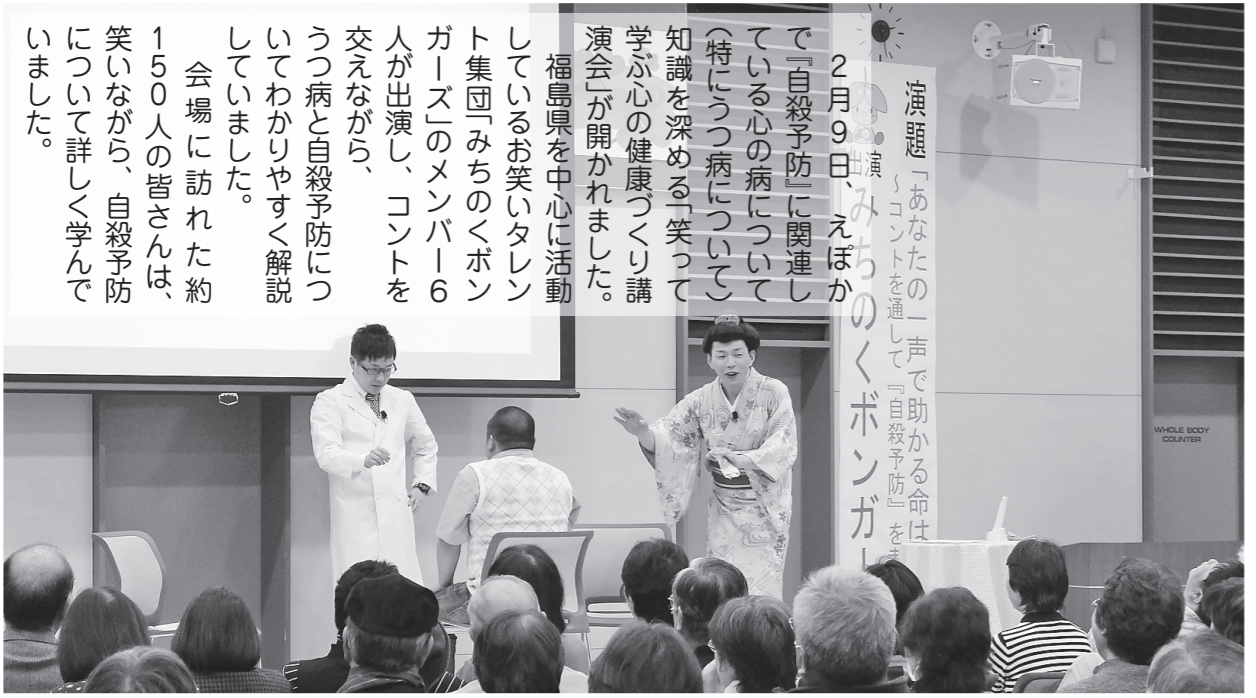 ２月９日、えぽか
で『自殺予防』に関連し
ている心の病について
（特にうつ病について）
知識を深める「笑って
学ぶ心の健康づくり講
演会」が開かれました。
　福島県を中心に活動
しているお笑いタレン
ト集団「みちのくボン
ガーズ」のメンバー６
人が出演し、コントを
交えながら、
うつ病と自殺予防につ
いてわかりやすく解説
していました。
　会場に訪れた約
１５０人の皆さんは、
笑いながら、自殺予防
について詳しく学んで
いました。
演題「あなたの一声で助かる命は
～コントを通して『自殺予防』を
出演 みちのくボンガー
WHOLE BODY
COUNTER